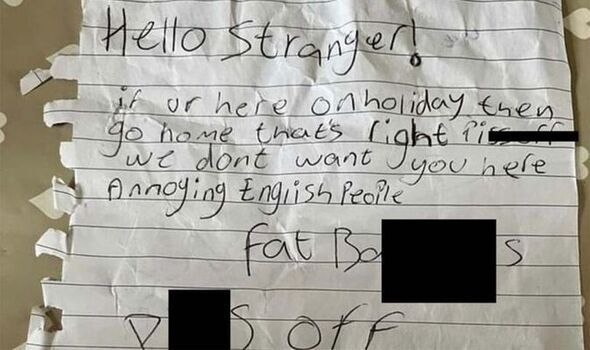 Hello Stranger!
if ur here on holiday then
go home that's right
we dont want you here
Annoying English People
fat
off